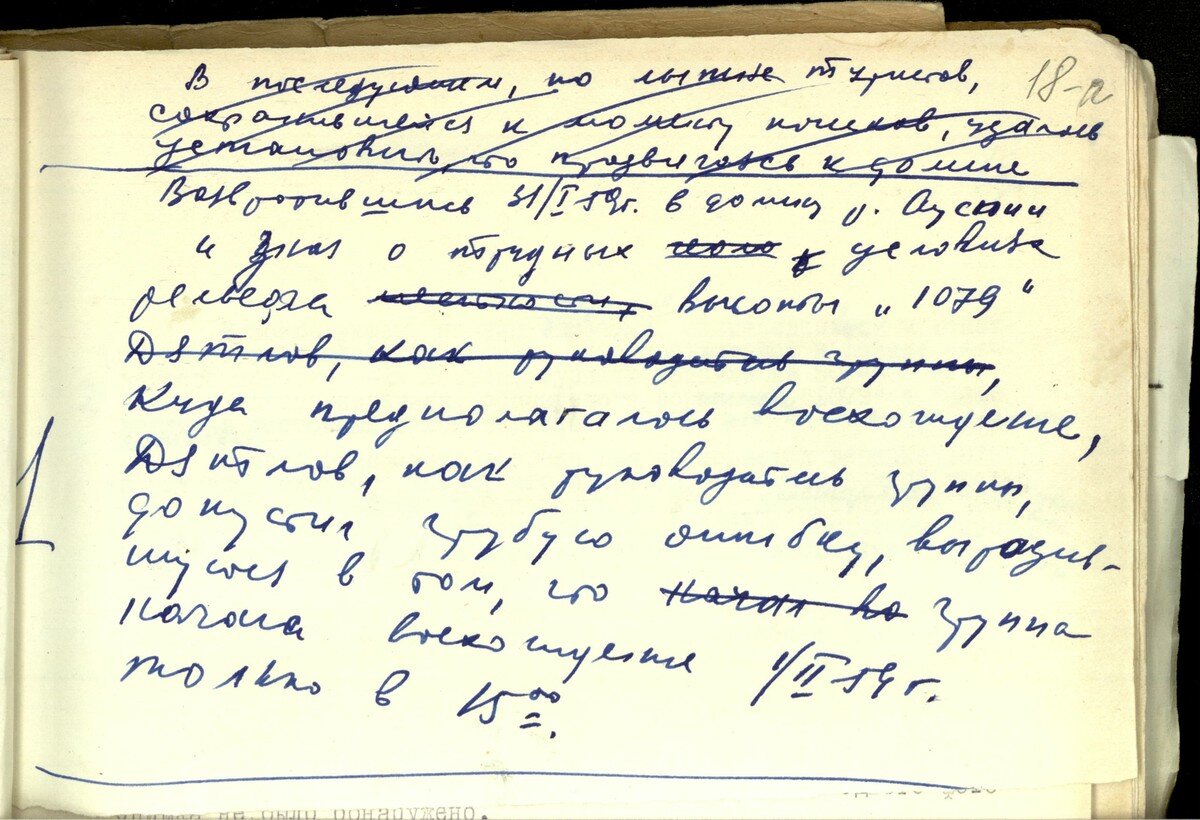 18-а
В последующем, по лыжне туристов,
сохранившейся к моменту поисков, удалось
установить, что продвигаясь к долине
Возвротившись 31/I 59г. в долину р. Ауспии
и зная о трудных усло условиях
рельефа местности, высоты „1079"
Дятлов, как руководитель группы,
Куда предполагалось восхождение,
Дятлов, как руководитель группы,
допустил грубую ошибку, выразив-
шуюся в том, что начал во группа
начала восхождение 1/II 59 г.
только в 15⁰⁰.
не было обнаружено.